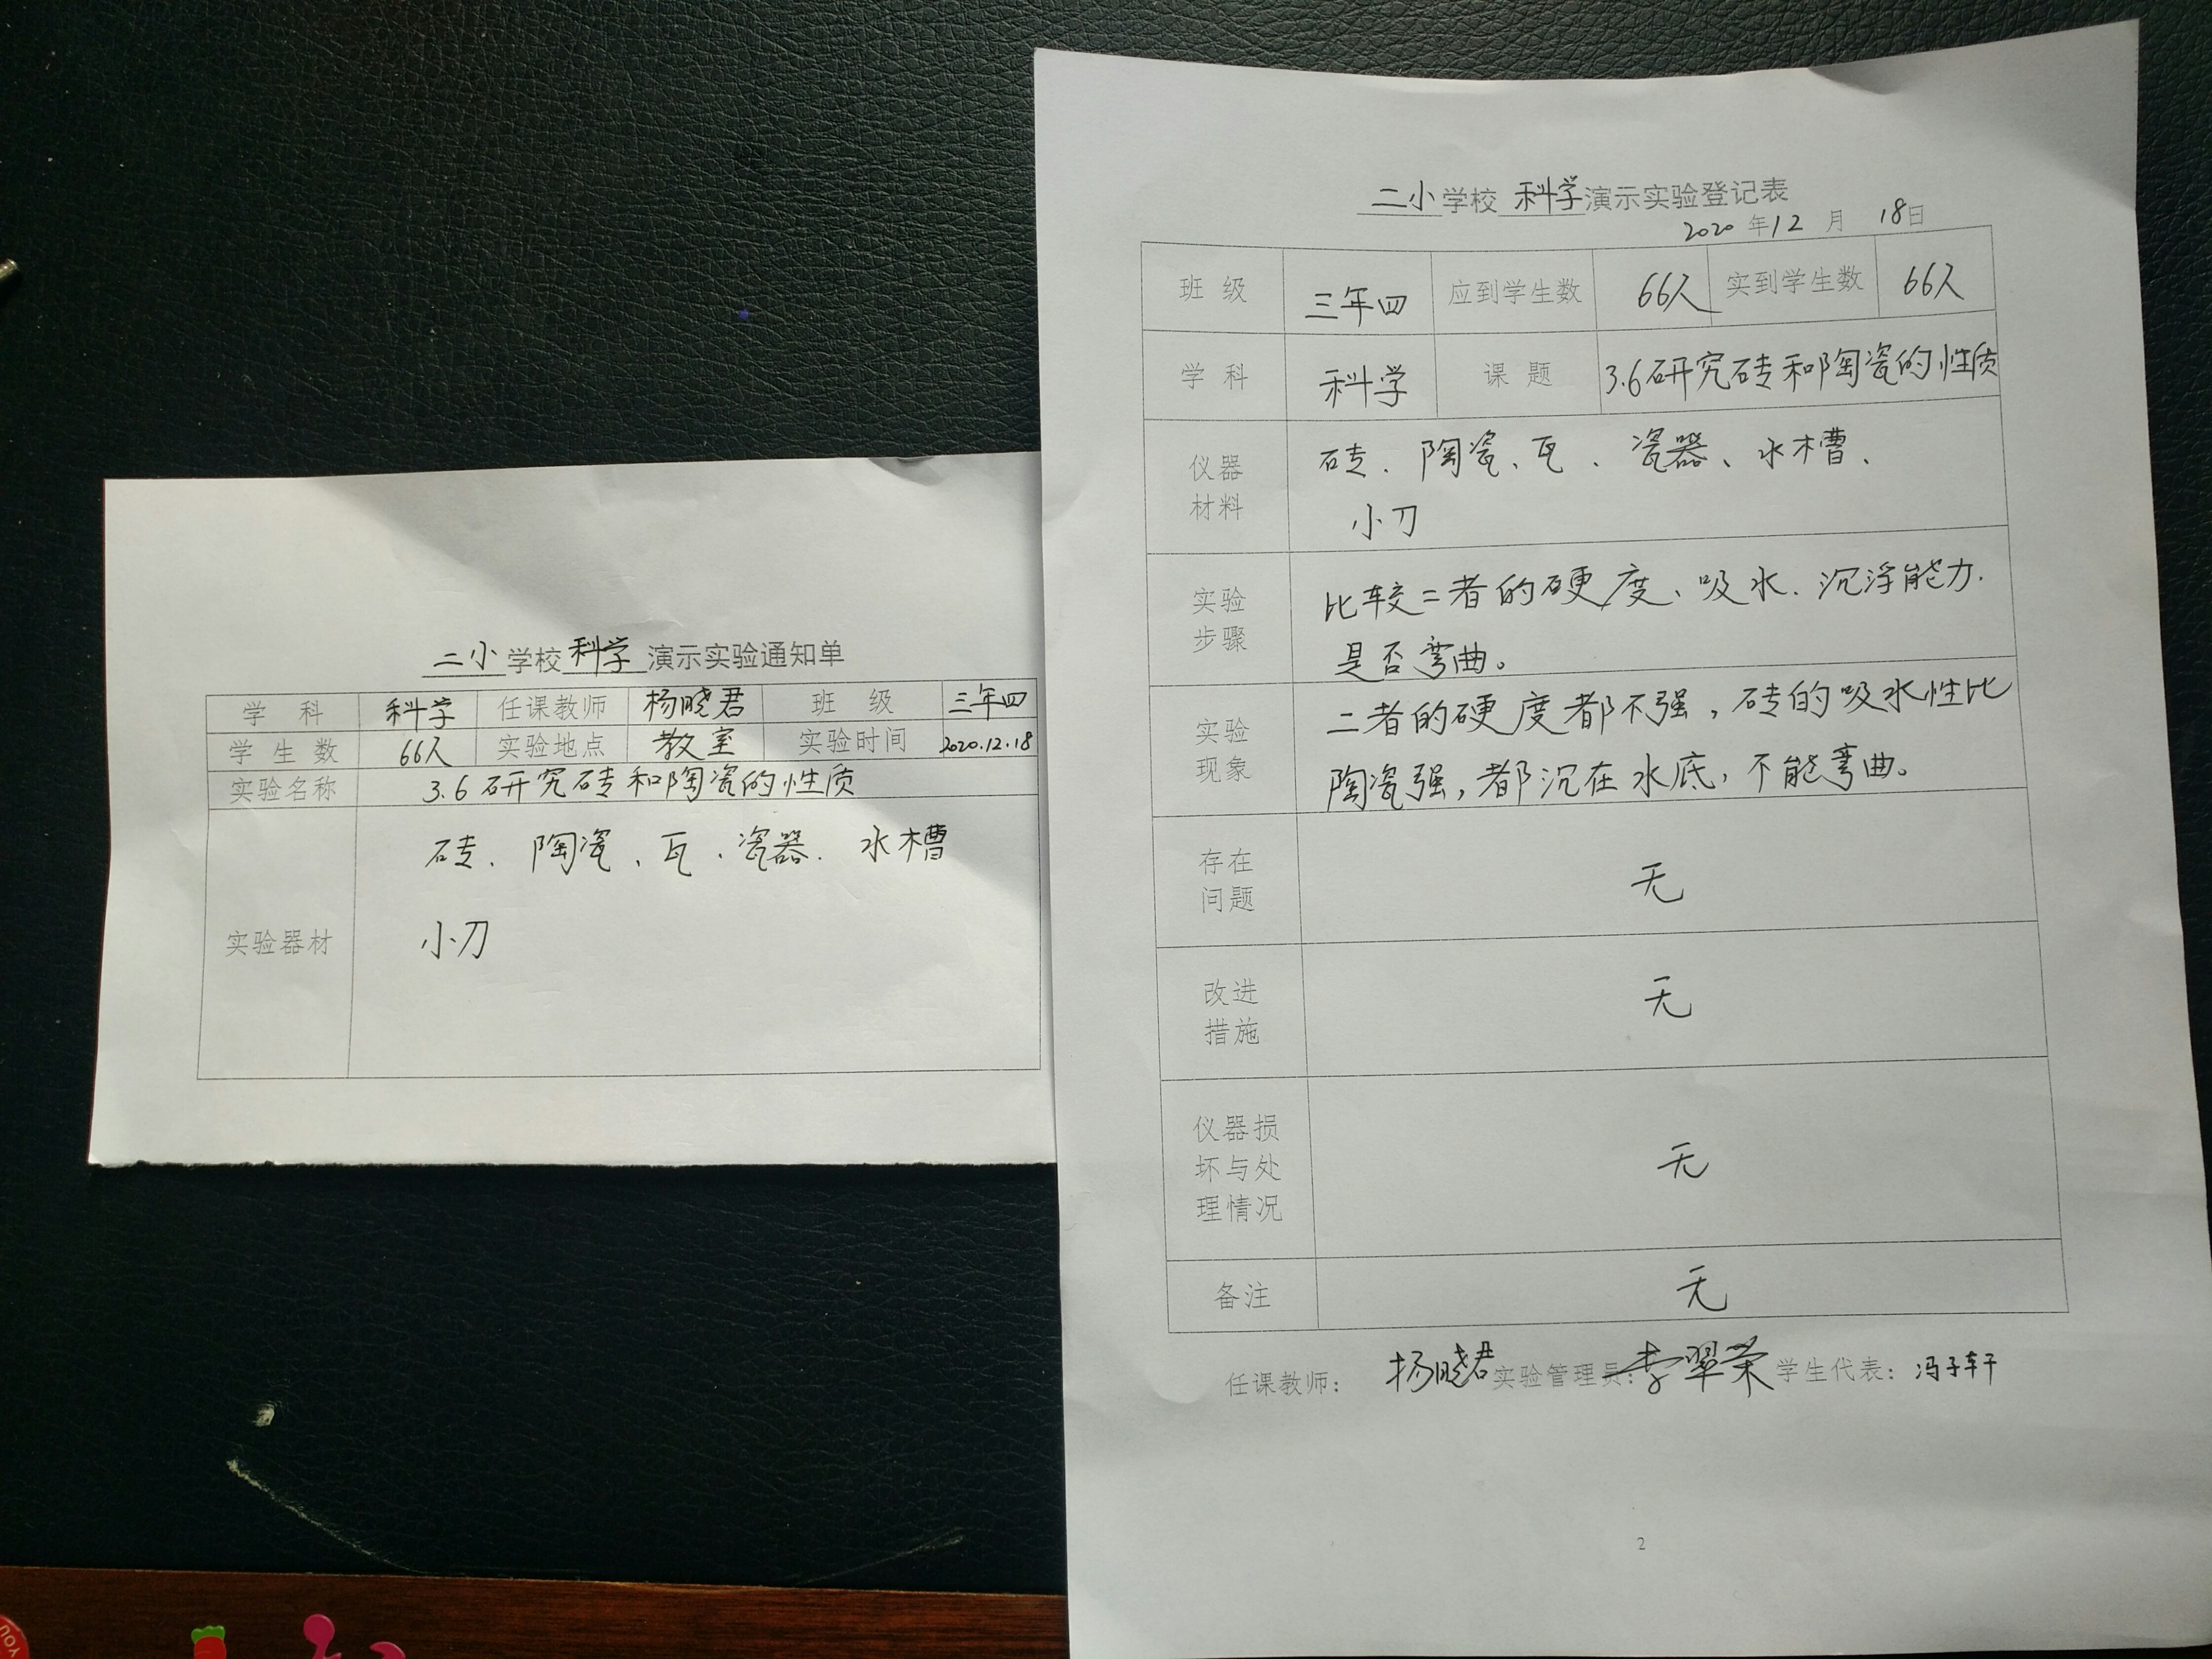 二小学校科学演示实验通知单
学 科 科学 任课教师 杨晓君 班 级 三年四
学 生 数 66人 实验地点 教室 实验时间 2020.12.18
实验名称 3.6研究砖和陶瓷的性质
实验器材 砖、陶瓷、瓦、瓷器、水槽
小刀
二小学校科学演示实验登记表
2020年12月18日
班 级 三年四 应到学生数 66人 实到学生数 66人
学 科 科学 课 题 3.6研究砖和陶瓷的性质
仪器
材料
砖、陶瓷、瓦、瓷器、水槽、
小刀
实验
步骤
比较二者的硬度、吸水、沉浮能力.
是否弯曲。
实验
现象
二者的硬度都不强，砖的吸水性比
陶瓷强，都沉在水底，不能弯曲。
存在
问题
无
改进
措施
无
仪器损
坏与处
理情况
无
备注 无
任课教师： 杨晓君 实验管理员：李翠荣 学生代表：冯子轩
2
YOU